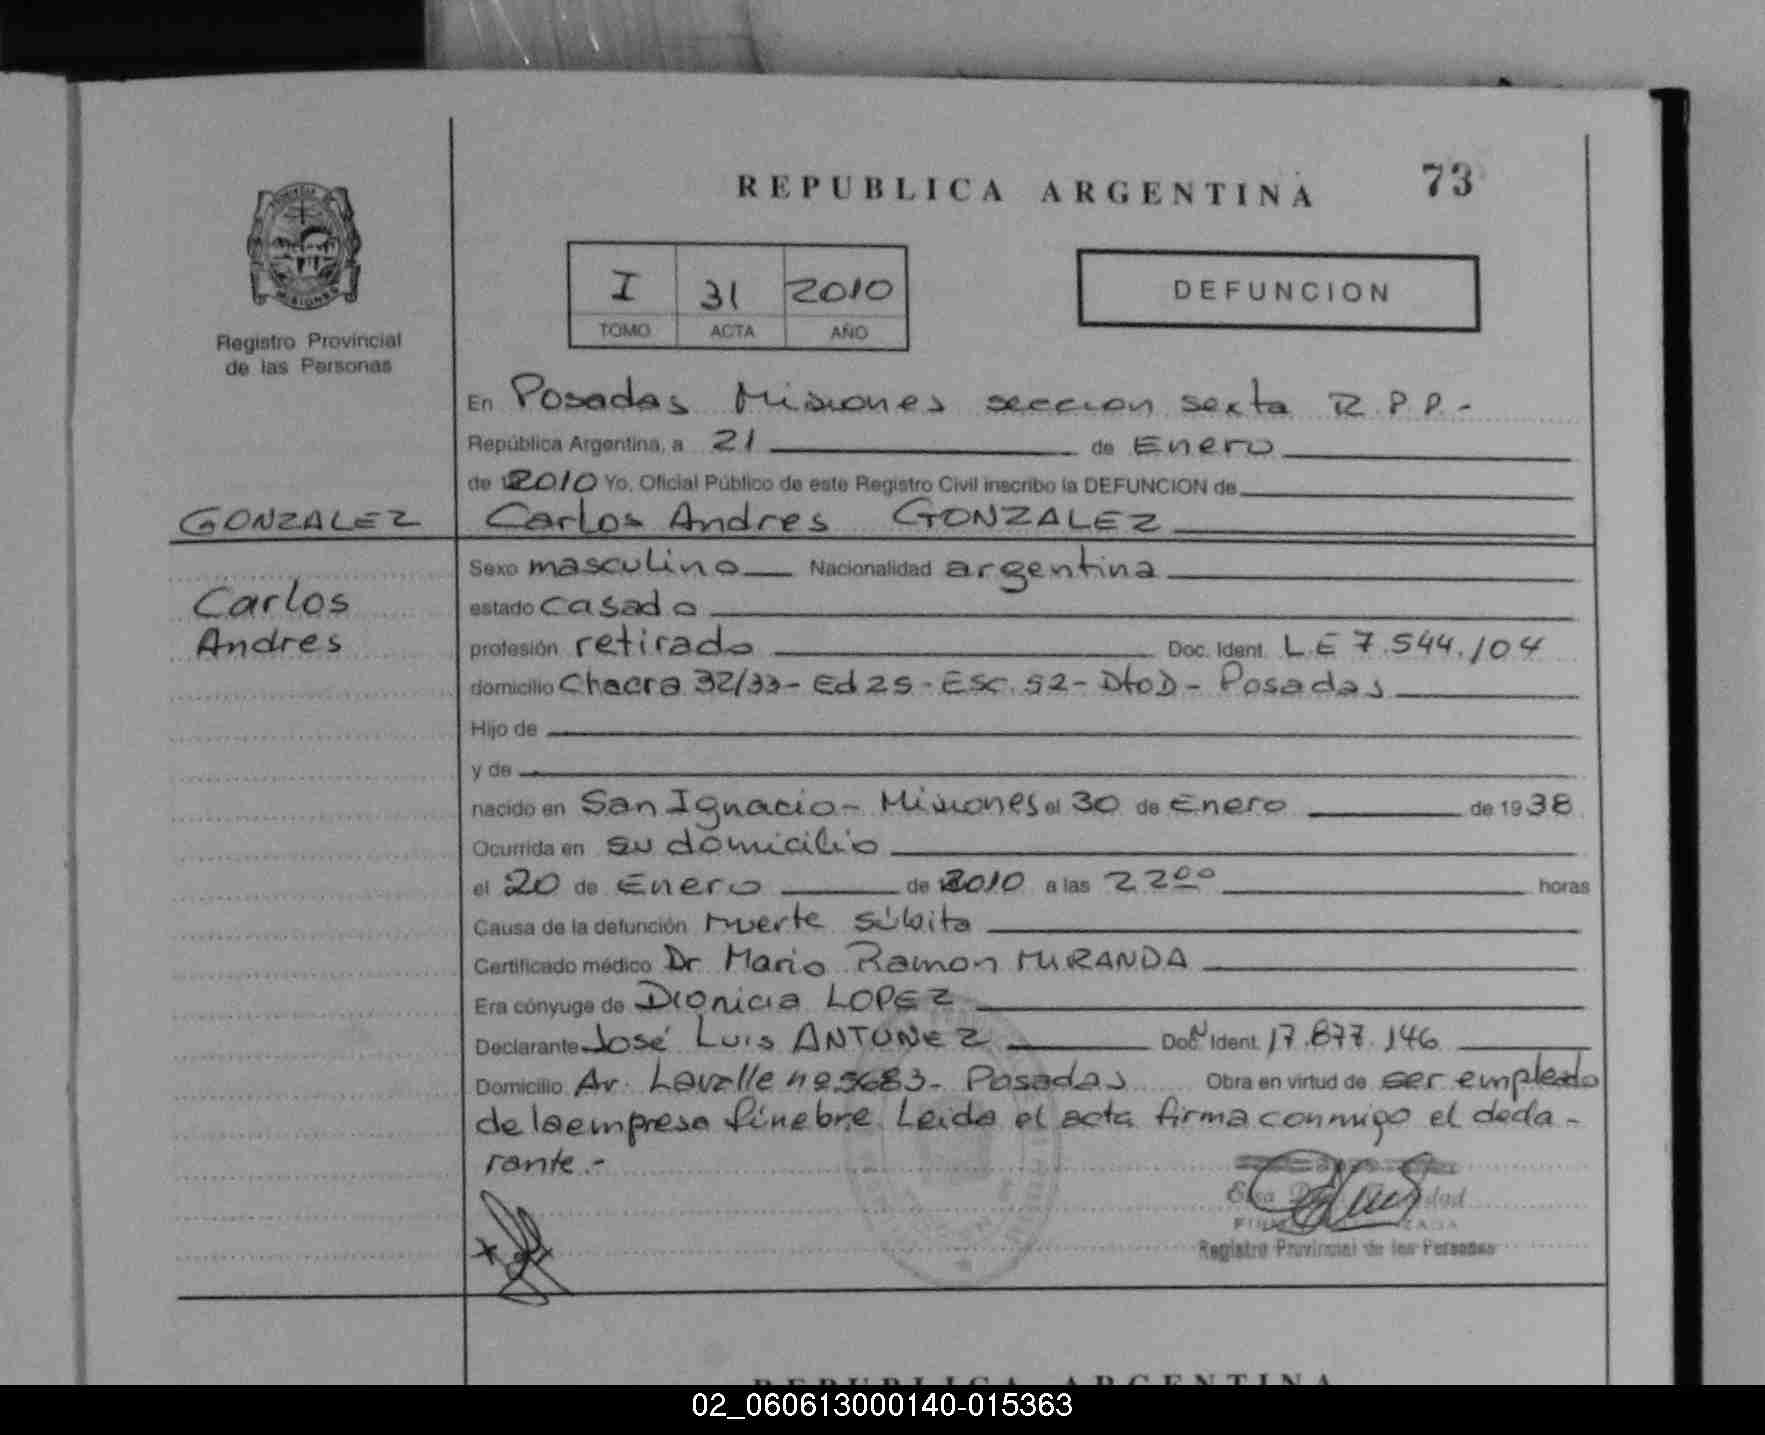 REPUBLICA ARGENTINA
73
Registro Provincial
de las Personas
I 31 2010
TOMO ACTA AÑO
DEFUNCION
En Posadas Misiones seccion sexta R.P.P.-
República Argentina, a 21 de Enero
de 2010 Yo, Oficial Público de este Registro Civil inscribo la DEFUNCION de
GONZALEZ Carlos Andres GONZALEZ
Sexo masculino Nacionalidad argentina
Carlos estado casado
Andres profesión retirado Doc. Ident. L.E 7.544.104
domicilio Chacra 32/33- Ed 25- Esc. 52- Dto D- Posadas
Hijo de
y de
nacido en San Ignacio- Misiones el 30 de Enero de 1938
Ocurrida en su domicilio
el 20 de Enero de 2010 a las 22°° horas
Causa de la defunción muerte súbita
Certificado médico Dr Mario Ramon MIRANDA
Era cónyuge de Dionicia LOPEZ
Declarante José Luis ANTUNEZ Doc. Ident. 17.877.146
Domicilio Av. Lavalle nº 5683- Posadas Obra en virtud de ser empleado
de la empresa fúnebre. Leida el acta firma conmigo el decla-
rante.-
Registro Provincial de las Personas
REPUBLICA ARGENTINA
02_060613000140-015363